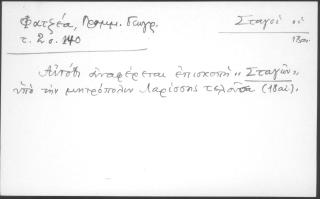 Φατζέα, Γραμμ. Γεωγρ.
τ. 2 σ. 140
Σταγοί οἱ
18αι.
Αὐτόθι ἀναφέρεται ἐπισκοπή „ Σταγῶν „
ὑπό τήν μητρόπολιν Λαρίσσης τελοῦσα (18αἰ).